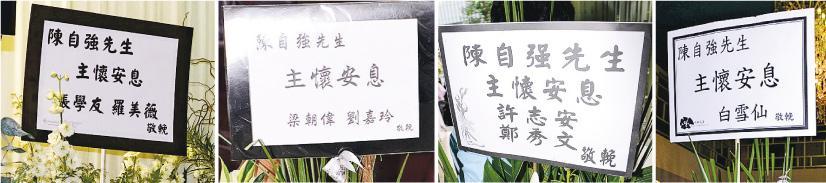 陳自強先生
主懷安息
張學友 羅美薇
敬輓
陳自強先生
主懷安息
梁朝偉 劉嘉玲
敬輓
陳自强先生
主懷安息
許志安
鄭秀文
敬輓
陳自強先生
主懷安息
白雪仙
敬輓